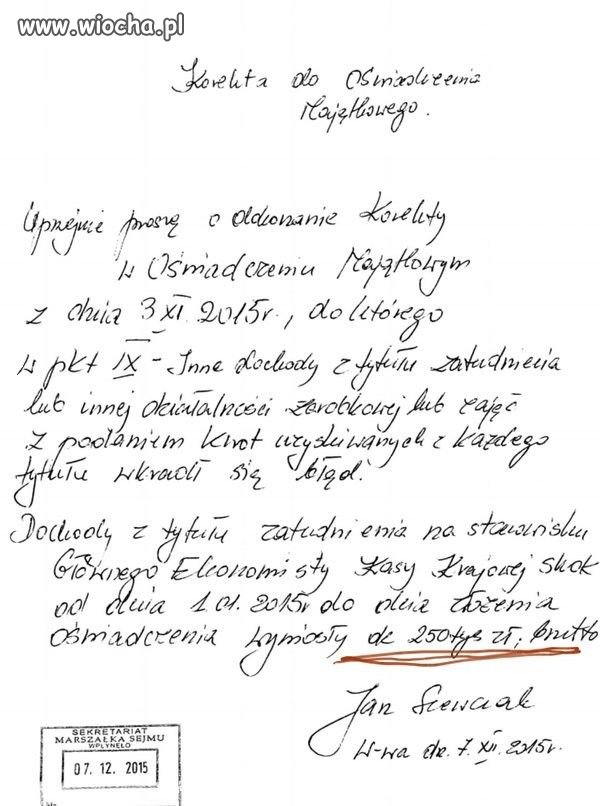 www.wiocha.pl
Korekta do Oświadczenia
Majątkowego.
Uprzejmie proszę o dokonanie korekty
w Oświadczeniu Majątkowym
z dnia 3 XI 2015r., do którego
w pkt IX - Inne dochody z tytułu zatrudnienia
lub innej działalności zarobkowej lub zajęć
z podaniem kwot uzyskiwanych z każdego
tytułu wkradł się błąd.
Dochody z tytułu zatrudnienia na stanowisku
Głównego Ekonomisty Kasy Krajowej SKOK
od dnia 1.01.2015r do dnia złożenia
Oświadczenia wyniosły ok 250 tys zł; brutto
Jan Szewczak
W-wa dn. 7.XII.2015r.
SEKRETARIAT
MARSZAŁKA SEJMU
WPŁYNĘŁO
07. 12. 2015